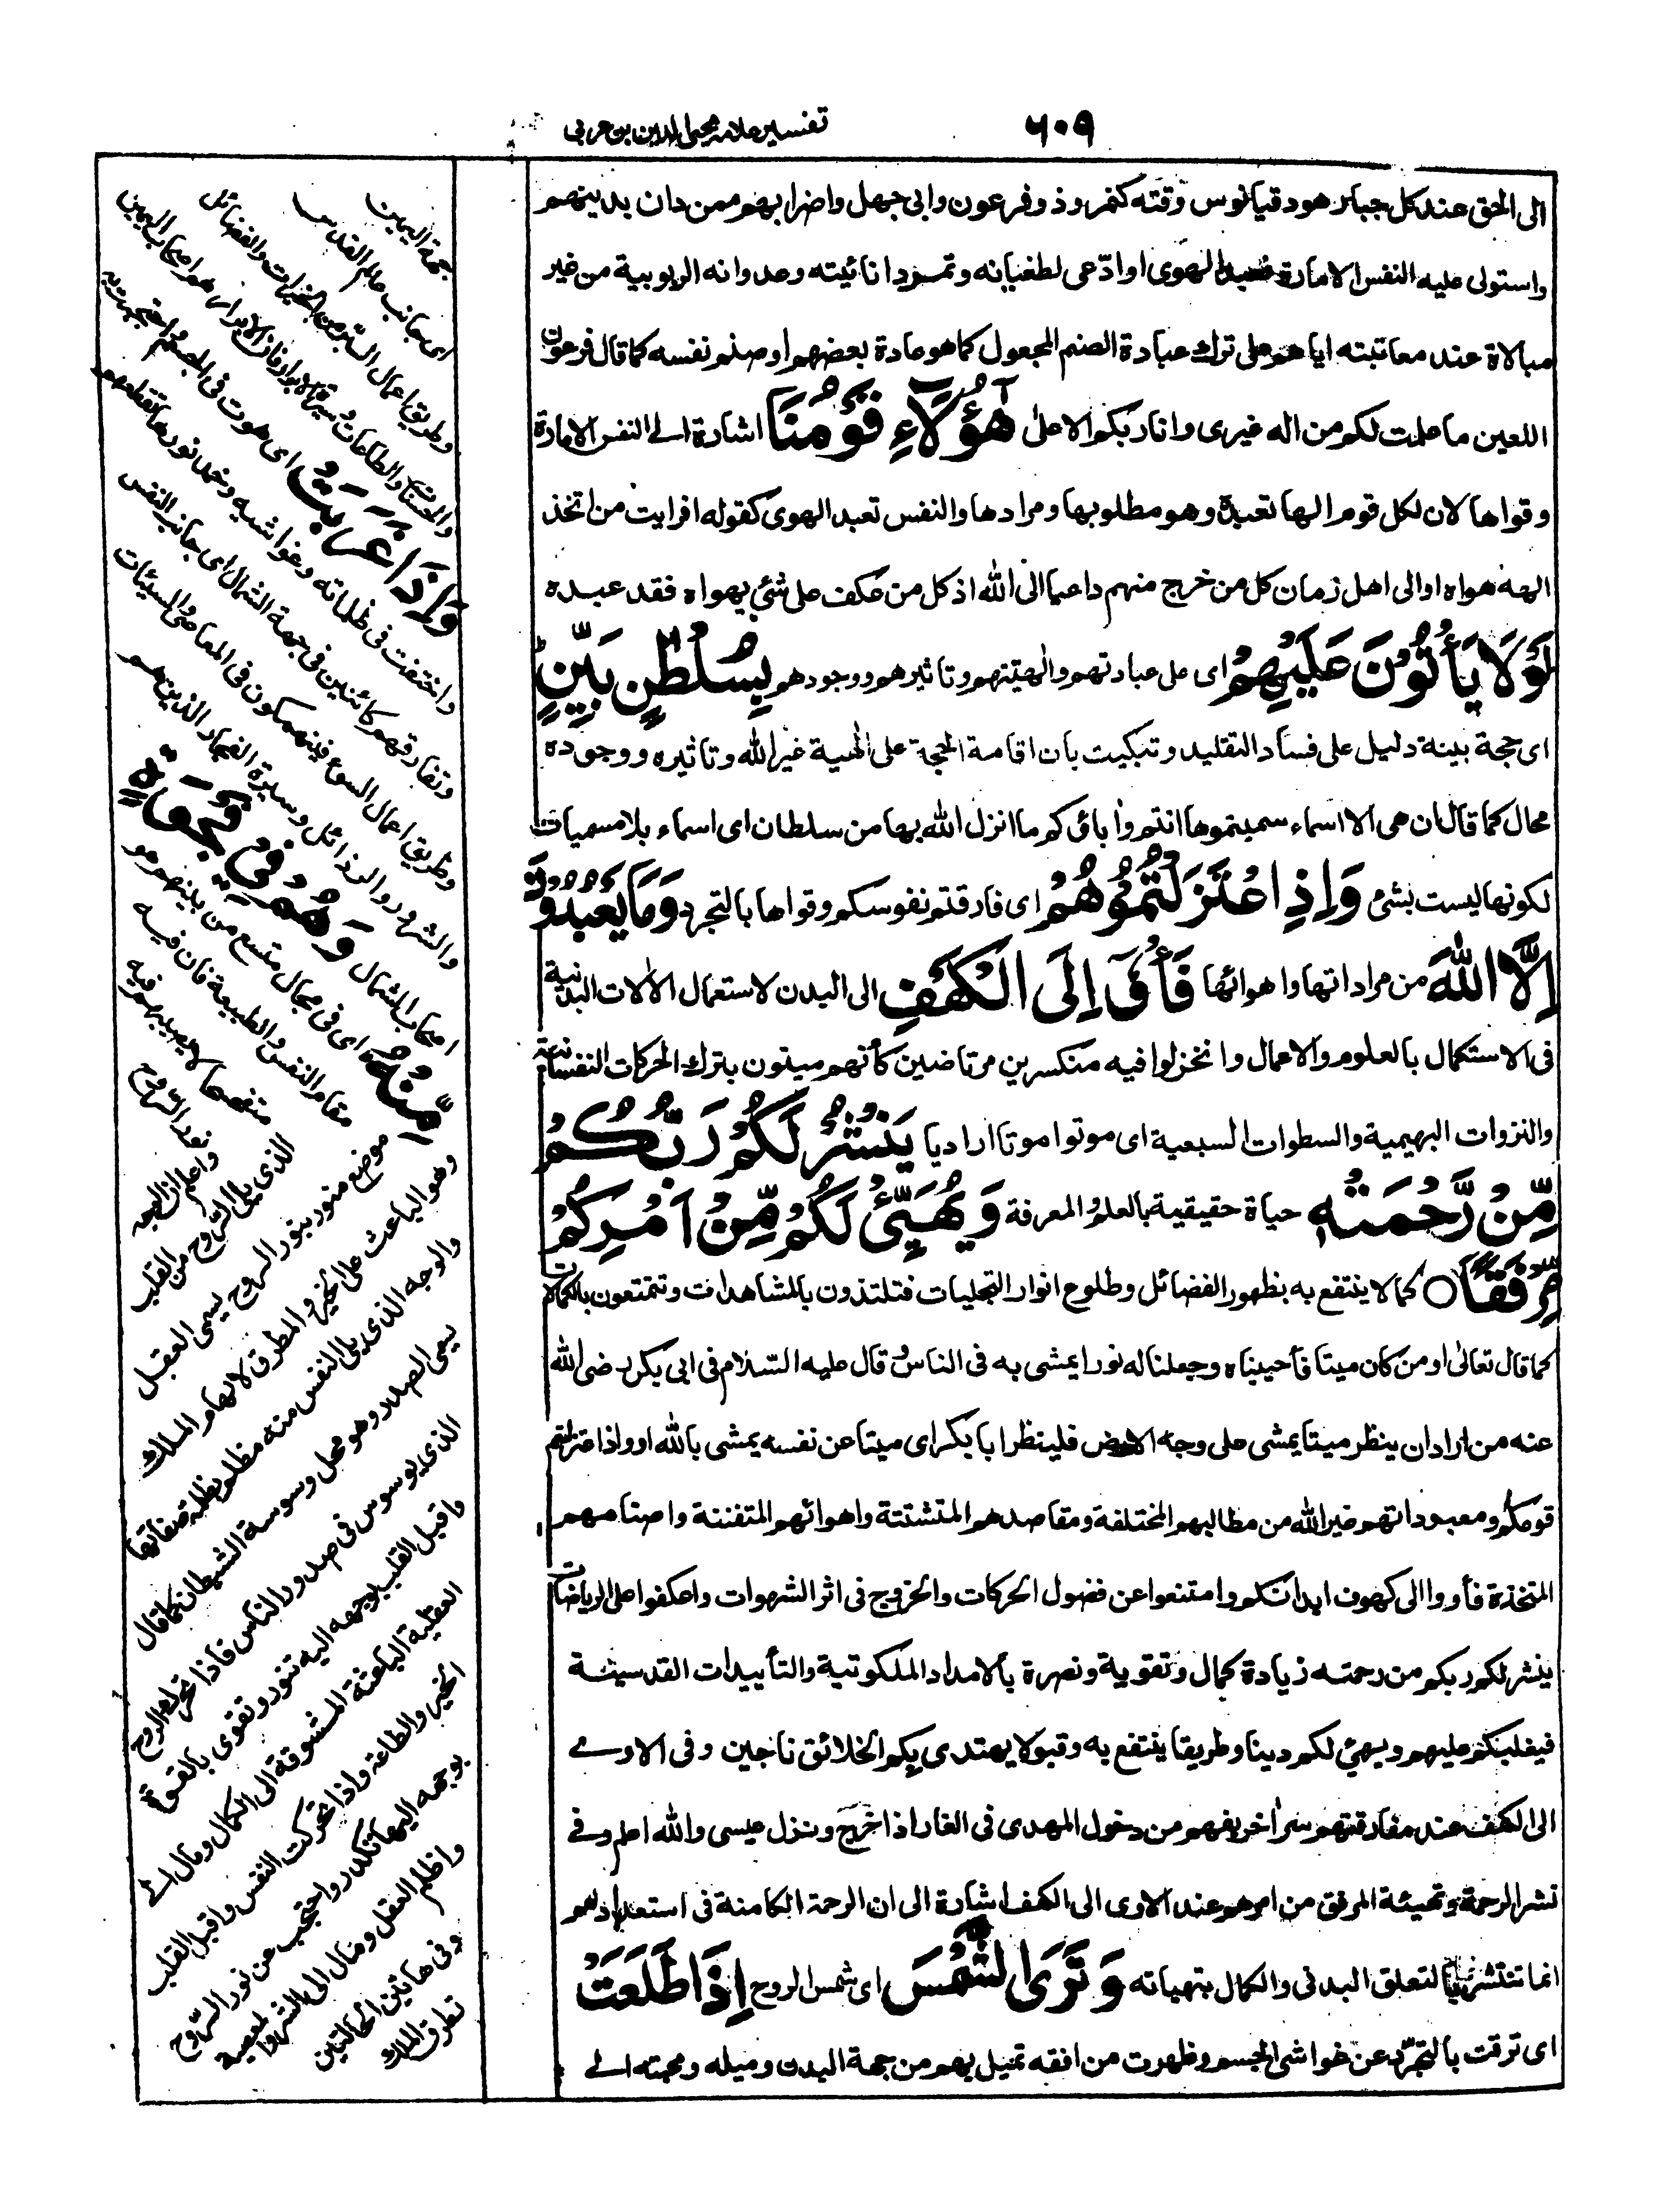 ٦٠٩
تفسير علامه محي الدين بن عربي
الى الحق عند كل جبار هو دقيانوس وقته كنمروذ وفرعون وابى جهل واضرابهم ممن دان بدينهم
واستولى عليه النفس الامارة فعبد الهوى او ادّعى لطغيانه وتمرد انائيته وعدوانه الربوبية من غير
مبالاة عند معاتبته اياهم على ترك عبادة الصنم المجعول كما هو عادة بعضهم او صنم نفسه كما قال فرعون
اللعين ما علمت لكم من اله غيرى وانا ربكم الاعلىٰ هٰٓؤُلَاۤءِ قَوْمُنَا اشارة الے النفس الامارة
وقواها لان لكل قوم الها تعبده وهو مطلوبها ومرادها والنفس تعبد الهوى كقوله افرايت من اتخذ
الهه هواه او الى اهل زمان كل من خرج منهم داعيا الى الله اذ كل من عكف على شئ يهواه فقد عبده
لَوْلَا يَأْتُوْنَ عَلَيْهِمْ اى على عبادتهم والٰهيّتهم وتاثيرهم ووجودهم بِسُلْطٰنٍ بَيِّنٍ
اى حجة بينة دليل على فساد التقليد وتبكيت بان اقامة الحجة على الٰهية غير الله وتاثيره ووجوده
محال كما قال ان هى الا اسماء سميتموها انتم واٰباؤكم ما انزل الله بها من سلطان اى اسماء بلا مسميات
لكونها ليست بشئ وَاِذِ اعْتَزَلْتُمُوْهُمْ اى فارقتم نفوسكم وقواها بالتجرد وَمَا يَعْبُدُوْنَ
اِلَّا اللّٰهَ من مراداتها واهوائها فَأْوٗۤا اِلَى الْكَهْفِ الى البدن لاستعمال الاٰلات البدنية
فى الاستكمال بالعلوم والاعمال وانخزلوا فيه منكسرين مرتاضين كأنهم ميتون بترك الحركات النفسانية
والنزوات البهيمية والسطوات السبعية اى موتوا موتا اراديا يَنْشُرْ لَكُمْ رَبُّكُمْ
مِّنْ رَّحْمَتِهٖ حياة حقيقية بالعلم والمعرفة وَيُهَيِّئْ لَكُمْ مِّنْ اَمْرِكُمْ
مِّرْفَقًا ○ كمالا ينتفع به بظهور الفضائل وطلوع انوار التجليات فتلتذون بالمشاهدات وتتمتعون بالكمالات
كما قال تعالىٰ او من كان ميتا فأحييناه وجعلنا له نورا يمشى به فى الناس وقال عليه السّلام فى ابى بكر رضى الله
عنه من اراد ان ينظر ميتا يمشى على وجه الارض فلينظر ابا بكر اى ميتا عن نفسه يمشى بالله او واذا عتزلتم
قومكم ومعبوداتهم غير الله من مطالبهم المختلفة ومقاصدهم المتشتتة واهوائهم المتفننة واصنامهم
المتخذة فأووا الى كهوف ابدانكم وامتنعوا عن فضول الحركات والخروج فى اثر الشهوات واعكفوا على الرياضات
ينشر لكم ربكم من رحمته زيادة كمال وتقوية ونصرة بالامداد الملكوتية والتأييدات القدسية
فيغلبنكم عليهم ويهئ لكم دينا وطريقا ينتفع به وقبولا يهتدى بكم الخلائق ناجين وفى الاوے
الى الكهف عند مفارقتهم سرّ اٰخر يفهم من دخول المهدى فى الغار اذا خرج ونزل عيسى والله اعلم وفے
نشر الرحمة وتهيئة المرفق من امرهم عند الاوى الى الكهف اشارة الى ان الرحمة الكامنة فى استعدادهم
انما تنتشر بالتعلق البدنى والكمال بتهياته وَتَرَى الشَّمْسَ اى شمس الروح اِذَا طَلَعَتْ
اى ترقت بالتجرّد عن غواشى الجسم وظهرت من افقه تميل بهم من جهة البدن وميله ومحبته الے
جهة اليمين
اى جانب عالم القدس
وطريق اعمال البرّ من الخيرات والفضائل
والحسنات والطاعات وسيرة الابرار فان الابرار هم اصحاب اليمين
وَاِذَا غَرَبَتْ اى هوت فى الجسم واحتجبت به
واختفت فى ظلماته وغواشيه وخمد نورها تقطعهم
وتفارقهم كائنين فى جهة الشمال اى جانب النفس
وطريق اعمال السوء فينهمكون فى المعاصى والسيئات
والشرور والرذائل وسيرة الفجار الذين هم
اصحاب الشمال وَهُمْ فِيْ فَجْوَةٍ
مِّنْهُ اى فى مجال متسع من بدنهم هو
مقام النفس والطبيعة فان فيه
متفسحا لا يصيبهم فيه
نور الرّوح
واعلم ان الوجه
الذى يلى الرّوح من القلب
موضع منور بنور الروح يسمى العقل
وهو الباعث على الخير والمطرق لالهام الملك
والوجه الذى يلى النفس منه مظلم بظلمة صفاتها
يسمى الصدر وهو محل وسوسة الشيطان كما قال
الذى يوسوس فى صدور الناس فاذا تحرك الروح
واقبل القلب بوجهه اليه تنور وتقوى بالقوة
العقلية الباعثة المشوقة الى الكمال ومال الے
الخير والطاعة واذا تحركت النفس واقبل القلب
بوجهه اليها تكدر واحتجب عن نور الرّوح
واظلم العقل ومال الى الشر والمعصية
وفى هاتين الحالتين
تطرق الملك